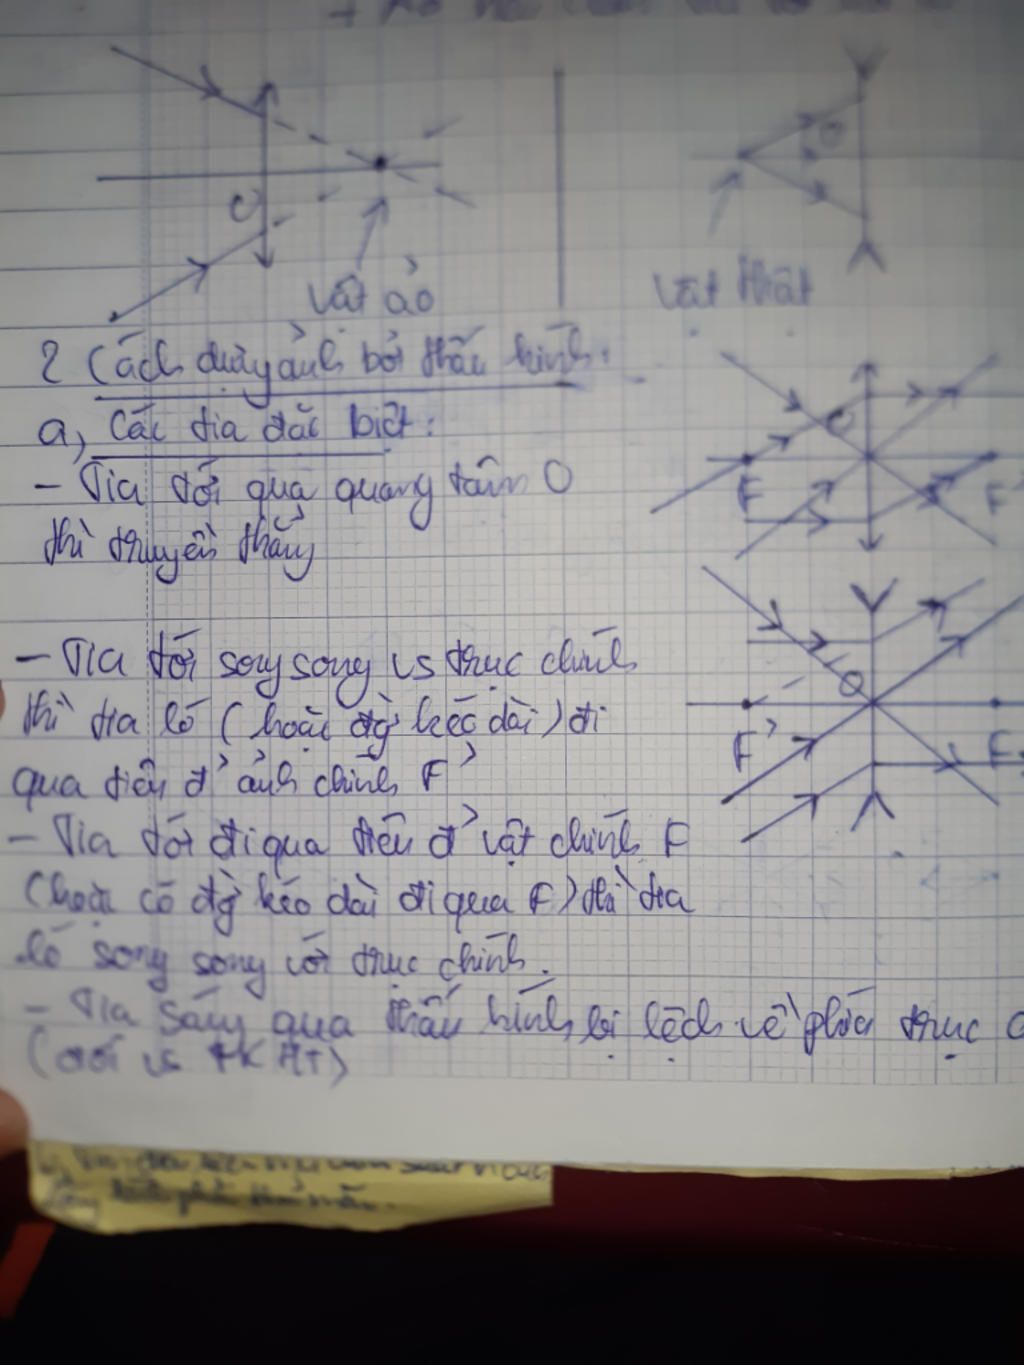 O
O
vật ảo
vật thật
2 Cách dựng ảnh bởi thấu kính:
a, Các tia đặc biệt:
- Tia tới qua quang tâm O
thì truyền thẳng
O
F
F'
- Tia tới song song vs trục chính
thì tia ló (hoặc đg kéo dài) đi
qua tiêu đ' ảnh chính F'
O
F'
F
- Tia tới đi qua tiêu đ' vật chính F
(hoặc có đg kéo dài đi qua F) thì tia
ló song song với trục chính.
- Tia sáng qua thấu kính bị lệch về phía trục
(đối vs TKHT)